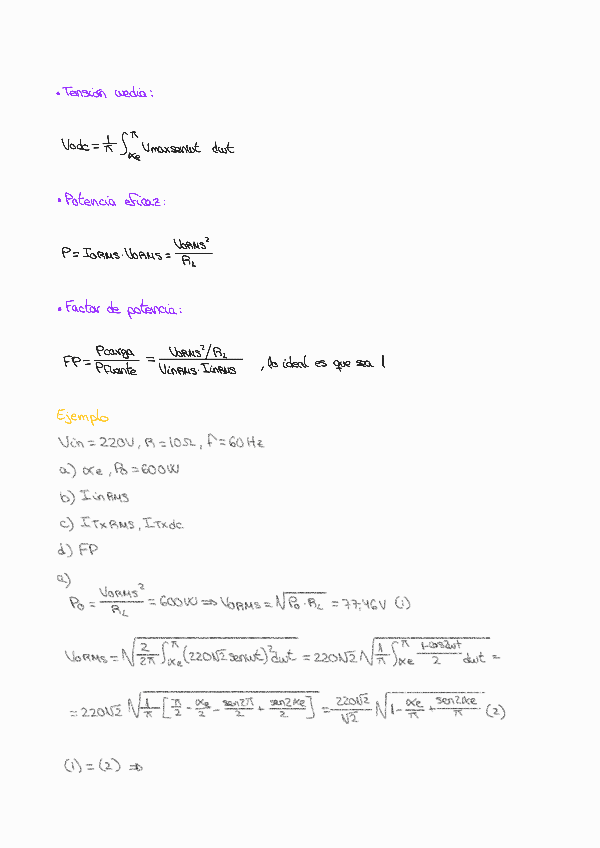 • Tensión media:
Vodc = 1/π ∫_αe^π Vmaxsenwt dwt
• Potencia eficaz:
P = IoRMS · VoRMS = VoRMS²/RL
• Factor de potencia:
FP = Pcarga/PFuente = VoRMS²/RL / VinRMS · IinRMS , lo ideal es que sea 1
Ejemplo
Vin = 220V, R = 10Ω, f = 60Hz
a) αe, Po = 600W
b) IinRMS
c) ITxRMS, ITxdc
d) FP
a)
Po = VoRMS²/RL = 600W ⇒ VoRMS = √(Po · RL) = 77,46V (1)
VoRMS = √(2/2π ∫_αe^π (220√2 senwt)² dwt) = 220√2 √(1/π ∫_αe^π (1-cos2wt)/2 dwt) =
= 220√2 √(1/π [π/2 - αe/2 - sen2π/2 + sen2αe/2]) = 220√2/√2 √(1 - αe/π + sen2αe/π) (2)
(1) = (2) ⇒